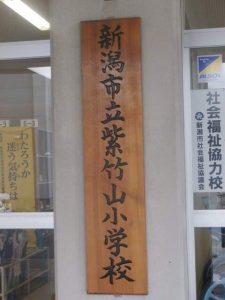 新潟市立紫竹山小学校
わたろうか
迷う気持ちは
ALSOK
社会福祉協力校
新潟市社会福祉協議会